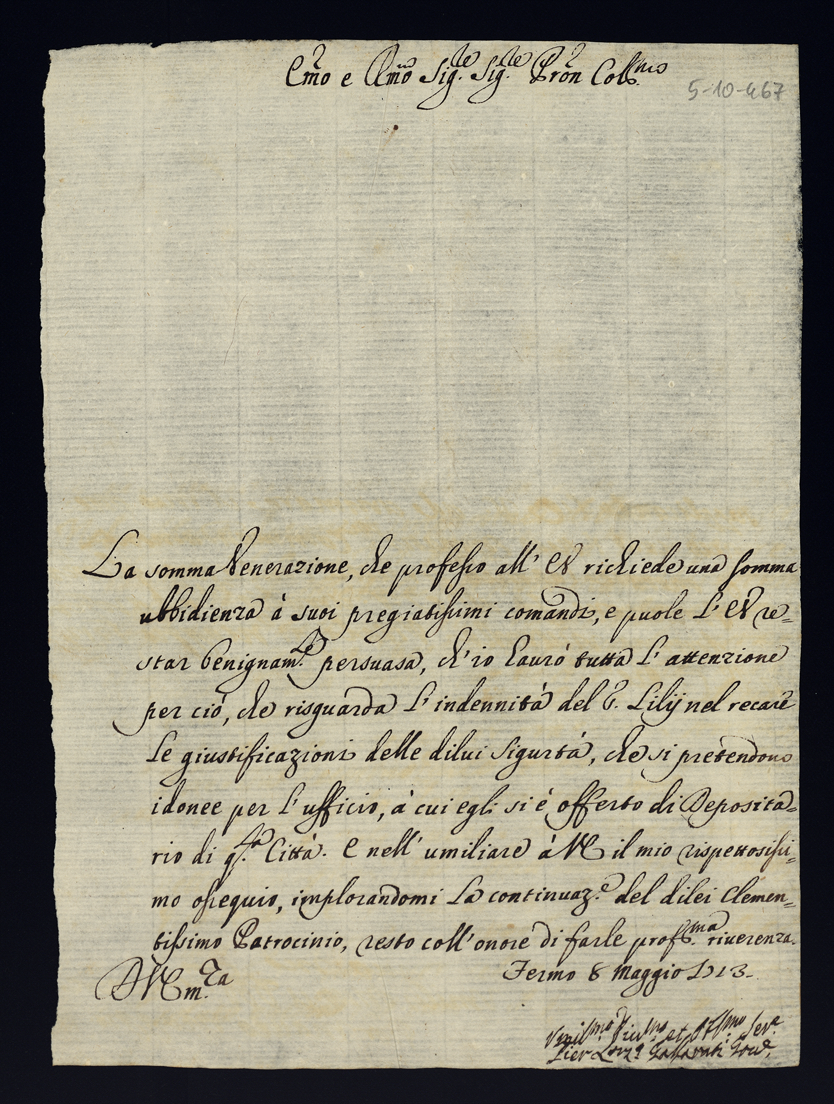 Emo e Rmo Sigre Sigre Pron Colmo
5-10-467
La somma Venerazione, che professo all' EV richiede una somma
ubbidienza à suoi pregiatissimi comandi, e puole l' EV re=
star benignamte persuasa, ch'io havrò tutta l' attenzione
per ciò, che risguarda l' indennità del Lilij nel recare
le giustificazioni delle dilui Sigurtà, che si pretendono
idonee per l' ufficio, à cui egli si è offerto di Deposita=
rio di qsta Città. E nell' umiliare à VE il mio rispettosissi=
mo ossequio, implorandomi la continuaze del dilei Clemen=
tissimo Patrocinio, resto coll' onore di farle profma riverenza.
Fermo 8 Maggio 1713.
DVEmza
Umilmo et Serre
Pier